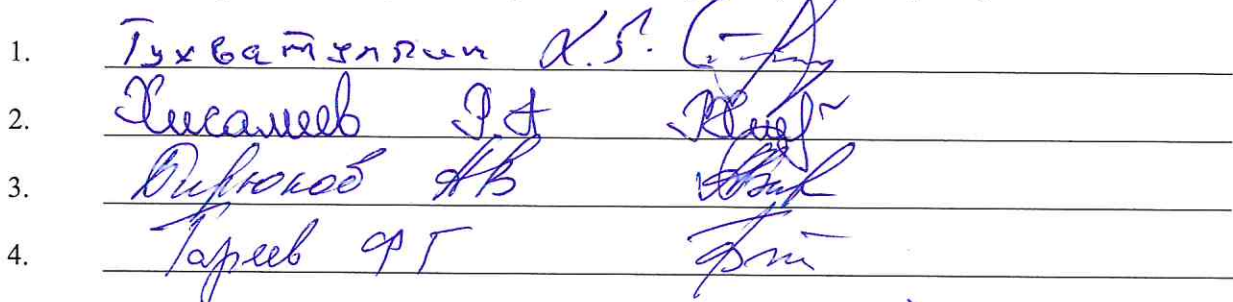 1. Тухватуллин Х.Г.
2. Хисамеев Р.А
3. Бирюков АВ
4. Гареев ФГ